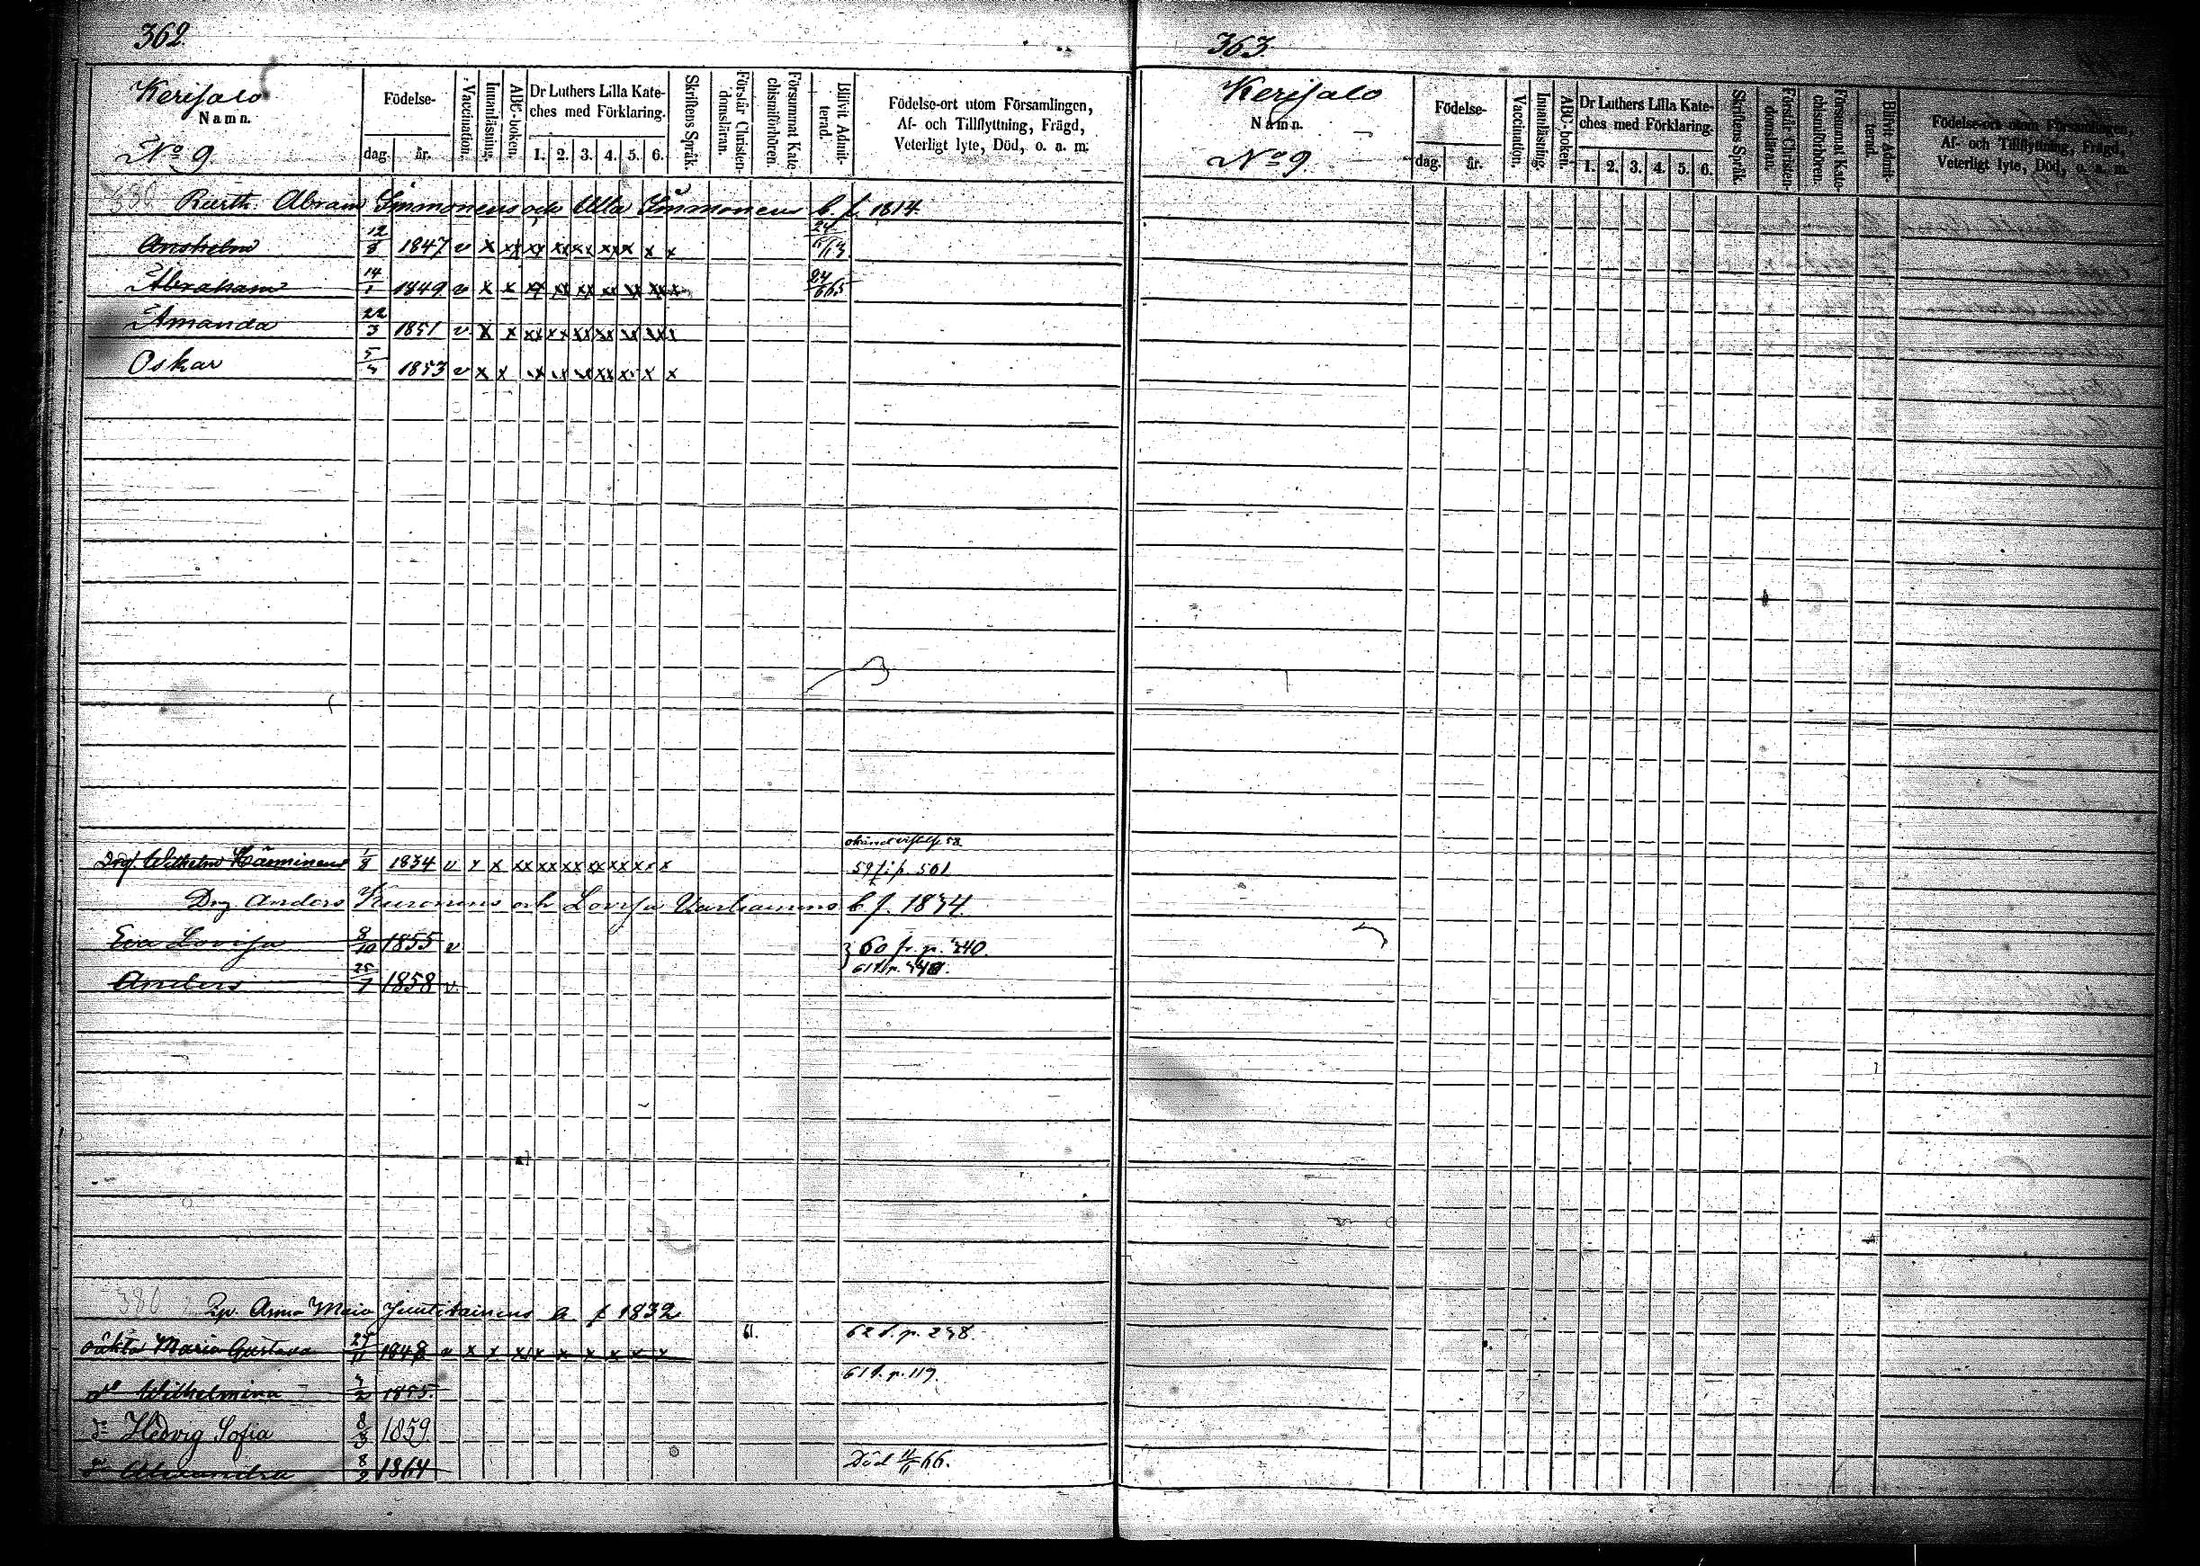 362.
Kerisalo
Namn.
No 9.
Födelse-
dag. år.
Vaccination.
Innanläsning.
ABC-boken.
Dr Luthers Lilla Kate-
ches med Förklaring.
1. 2. 3. 4. 5. 6.
Skriftens Språk.
Förstår Christen-
domsläran.
Försummat Kate-
chismiförhören.
Blifvit Admit-
terad.
Födelse-ort utom Församlingen,
Af- och Tillflyttning, Frägd,
Veterligt lyte, Död, o. a. m.
380 Abram Immonens och Ulla Immonens b. f. 1814.
Anshelm 12/8 1847 v x xx xx xx xx xx x x
Abraham 14/1 1849 v x x xx xx xx xx xx xxx 24/6 65
Amanda 22/3 1851 v x x xx xx xx xx xx xxx
Oskar 1853 v x x xx xx xx xx x x x
Wilhelm 1/8 1834 v x x xx xx xx xx xx x x x
59 f. p. 501
Drg Anders Kuronens och Lovisa b. f. 1834.
Eva Lovisa 8/10 1855 v
60 fr. p. 340.
Anders 25/7 1858 v
386 Anna Maria a. f 1832
oäkta Maria Gustava 1848 v x x xx x x x x x 61. 62 f. p. 238.
do Wilhelmina 1855. 61 f. p. 119.
d:o Hedvig Sofia 1859
do Alexandra 8/2 1864 Död 66.
363.
Kerisalo
Namn.
No 9.
Födelse-
dag. år.
Vaccination.
Innanläsning.
ABC-boken.
Dr Luthers Lilla Kate-
ches med Förklaring.
1. 2. 3. 4. 5. 6.
Skriftens Språk.
Förstår Christen-
domsläran.
Försummat Kate-
chismiförhören.
Blifvit Admit-
terad.
Födelse-ort utom Församlingen,
Af- och Tillflyttning, Frägd,
Veterligt lyte, Död, o. a. m.